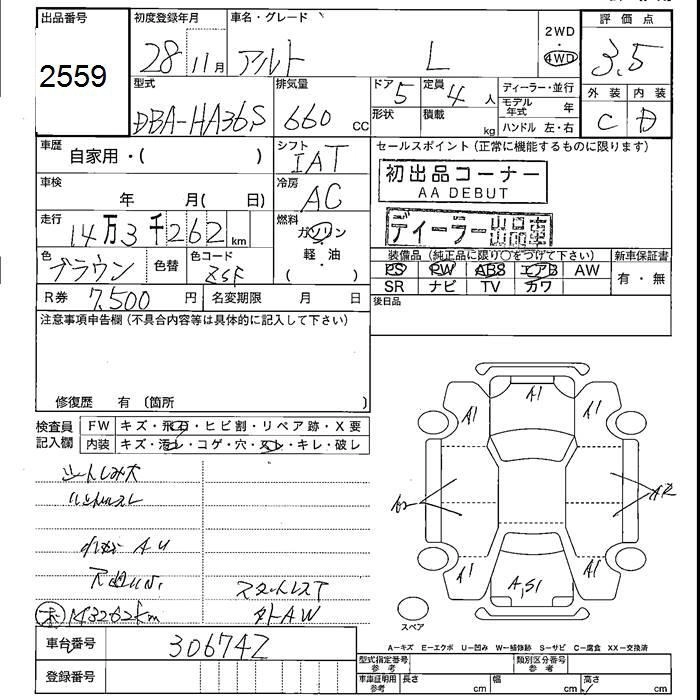 出品番号
2559
初度登録年月
28 11月
車名・グレード
アルト L
2WD
・
4WD
評価点
3.5
外装 内装
C D
型式
DBA-HA36S
排気量
660 cc
ドア 5
定員 4 人
形状
積載 kg
ディーラー・並行
モデル年式 年
ハンドル 左・右
車歴
自家用・( )
シフト
IAT
セールスポイント(正常に機能するものに限ります)
初出品コーナー
AA DEBUT
ディーラー出品車
車検
年 月( 日)
冷房
AC
走行
14万3千262km
燃料
ガソリン
軽・油
( )
色
ブラウン
色替
色コード
ZSF
装備品(純正品に限り○をつけて下さい)
PS PW ABS エアB AW
SR ナビ TV カワ
新車保証書
有・無
R券 7,500 円
名変期限 月 日
後日品
注意事項申告欄(不具合内容等は具体的に記入して下さい)
修復歴 有(箇所 )
検査員記入欄
FW キズ・飛石・ヒビ割・リペア跡・X要
内装 キズ・汚レ・コゲ・穴・スレ・キレ・破レ
シートしみ大
AU
スタットレス
外AW
143262km
車台番号
306742
登録番号
A1
A1
A1
A2
A1
A1
A,S1
スペア
A-キズ E-エクボ U-凹み W-補修跡 S-サビ C-腐食 XX-交換済
型式指定番号 参考
類別区分番号 参考
車庫証明用 参考
長さ cm
幅 cm
高さ cm